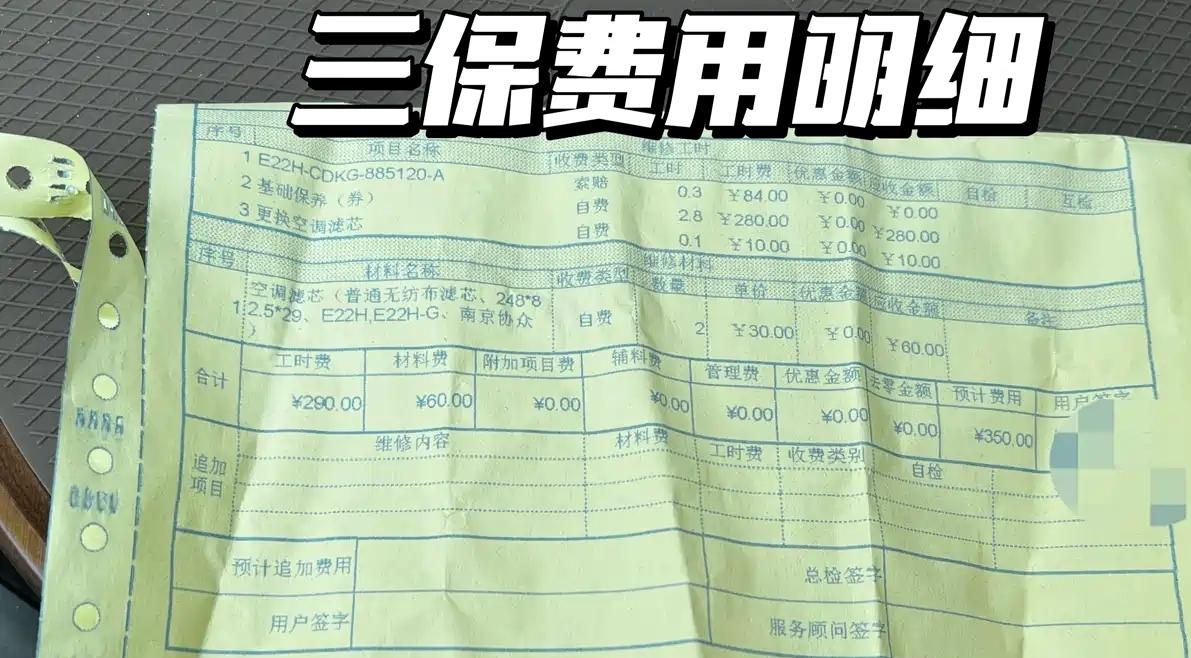 三保费用明细
维修工时
序号 项目名称 收费类型 工时 工时费 优惠金额 应收金额 自检 互检
1 E22H-CDKG-885120-A 索赔 0.3 ¥84.00 ¥0.00 ¥0.00
2 基础保养（券） 自费 2.8 ¥280.00 ¥0.00 ¥280.00
3 更换空调滤芯 自费 0.1 ¥10.00 ¥0.00 ¥10.00
维修材料
序号 材料名称 收费类型 数量 单价 优惠金额 应收金额 备注
空调滤芯（普通无纺布滤芯、248*8
1 2.5*29、E22H,E22H-G、南京协众 自费 2 ¥30.00 ¥0.00 ¥60.00
）
合计 工时费 材料费 附加项目费 辅料费 管理费 优惠金额 去零金额 预计费用 用户签字
¥290.00 ¥60.00 ¥0.00 ¥0.00 ¥0.00 ¥0.00 ¥0.00 ¥350.00
追加 维修内容 材料费 工时费 收费类别 自检
项目
预计追加费用 总检签字
用户签字 服务顾问签字